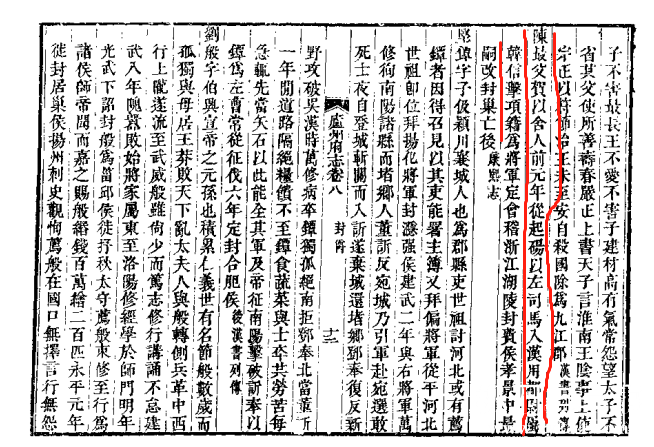 子不害最長王不愛不害子建材高有氣常怨望太子不
省其父使所善壽春嚴正上書天子言淮南王陰事上使
宗正以符節治王未至安自殺國除為九江郡漢書列傳
陳最父賀以舍人前元年從起碭以左司馬入漢用都尉屬
韓信擊項籍為將軍定會稽浙江湖陵封費侯孝景中最
嗣改封巢亡後康熙志
堅鐔字子伋潁川襄城人也為郡縣吏世祖討河北或有薦
鐔者因得召見以其吏能署主簿又拜偏將軍從平河北
世祖即位拜揚化將軍封㶏強侯建武二年與右將軍萬
修徇南陽諸縣而堵鄉人董訢反宛城乃引軍赴宛選敢
死士夜自登城斬關而入訢遂棄城還堵鄉鄧奉復反新
廬州府志卷八 封爵 十三
野攻破吳漢時萬修病卒鐔獨孤絕南拒鄧奉北當董訢
一年間道路隔絕糧饋不至鐔食蔬菜與士卒共勞苦每
急輒先當矢石以此能全其軍及帝征南陽擊破訢奉以
鐔為左曹常從征伐六年定封合肥侯後漢書列傳
劉般字伯興宣帝之元孫也積累仁義世有名節般數歲而
孤獨與母居王莽敗天下亂太夫人與般轉側兵革中西
行上隴遂流至武威般雖尚少而篤志修行講誦不怠建
武八年隗囂敗始將家屬東至洛陽修經學於師門明年
光武下詔封般為菑邱侯徙抒秋太守薦般束修至行為
諸侯師帝聞而嘉之賜般緡錢百萬繒二百匹永平元年
徙封居巢侯揚州刺史觀恂薦般在國口無擇言行無怨